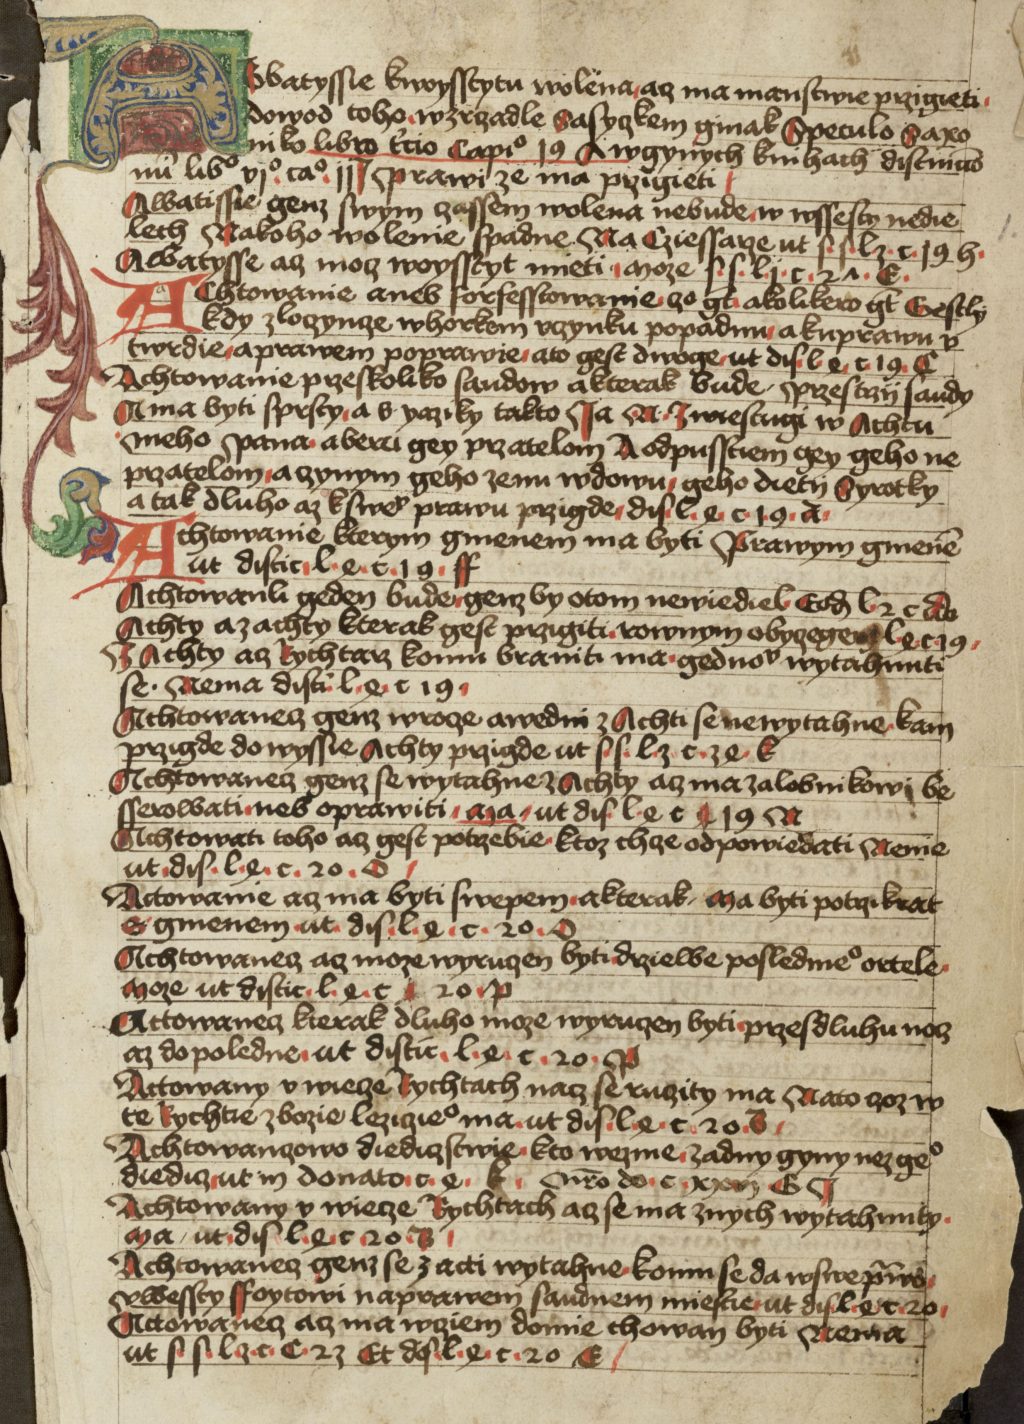 Abatyssie kwoysstytu wolena, az ma manstwie przigieti
dowod toho wzrzadle Sasyczkem ginak Speculo Saxo
niko libro tercio Capio 19 A wgynych knihach distincio
num libo vjo cao iij Prawi ze ma przigieti
Abatissie genz swym czassem wolena nebude w wssesty nedie
lech Nakoho wolenie spadne Na Cziessarze ut s s l z c 19 h
Abatysse az moz woysstyt mieti moze s s l j c 2 A E
Achtowanie aneb forfesstowanie zo gt akolikero gt Gestly
kdy zloczyncze whorkem vczynku popadnu a kuprawu v
twrdie, aprawem poprawie, ato gest dwoge ut dis l e c 19 C
Achtowanie przeskoliko saudow akterak bude Przestrzij saudy
A ma byti sprsty, a s yaziky takto Ja N Zwiestugi w Achtu
meho Pana aberu gey przatelom A odpusstiem gey geho ne
przatelom, aczynym geho zenu wdowu, geho dieti Syrotky
a tak dluho az kswev prawu przigde, dis l e c 19 A
Achtowanie kterym gmenem ma byti Prawym gmene
ut distic l e c 19 ff
Achtowanli geden bude genz by otom newiediel Eod l 2 c
Achty azachty kterak gest przigiti rownym obyczegem l e c 19
Z Achty az Rychtarz komu braniti ma gednov wytahnuti
se Nema disti l e c 19
Achtowanecz genz wrocze awedni z Achti se newytahne kam
przigde dowyssie Achty przigde ut s s l z c ze K
Achtowanecz genz se wytahne z Achty az ma zalobnikowi be
sserowati neb oprawiti Ma ut dis l e c 19 N
Achtowati toho az gest potrzebie ktoz chze odpowiedati Nenie
ut dis l e c 20 O
Actowanie az ma byti swepem akterak Ma byti potrzikrat
s gmenem ut dis l e c 20 O
Achtowanecz az moze wyruczen byti drzielbe poslednieo ortele
Moze ut distic l e c 20 P
Actowanecz kterak dluho moze wyruczen byti przesdluhu nocz
az do poledne ut distic l e c 20 P
Actowany v wiecze Rychtach nacz se ruczity ma Nato czoz w
te Rychtie zbozie lezicieo ma ut dis l e c 20
Achtowanczowo diedicstwie kto wezme zadny gyny nez geo
diedicz ut in Donato c e K
Achtowany v wiecze Rychtach az se ma znych wytahnuty
Ma ut dis l e c 20
Achtowanecz genz se z acti wytahne komu se da wswe
vwessty ffoytowi naprawem saudnem miestie ut dis l e c 20
Actowanecz az ma wziem domie chowan byti Nema
ut s s l z c C 23 Et dis l e c 20 E